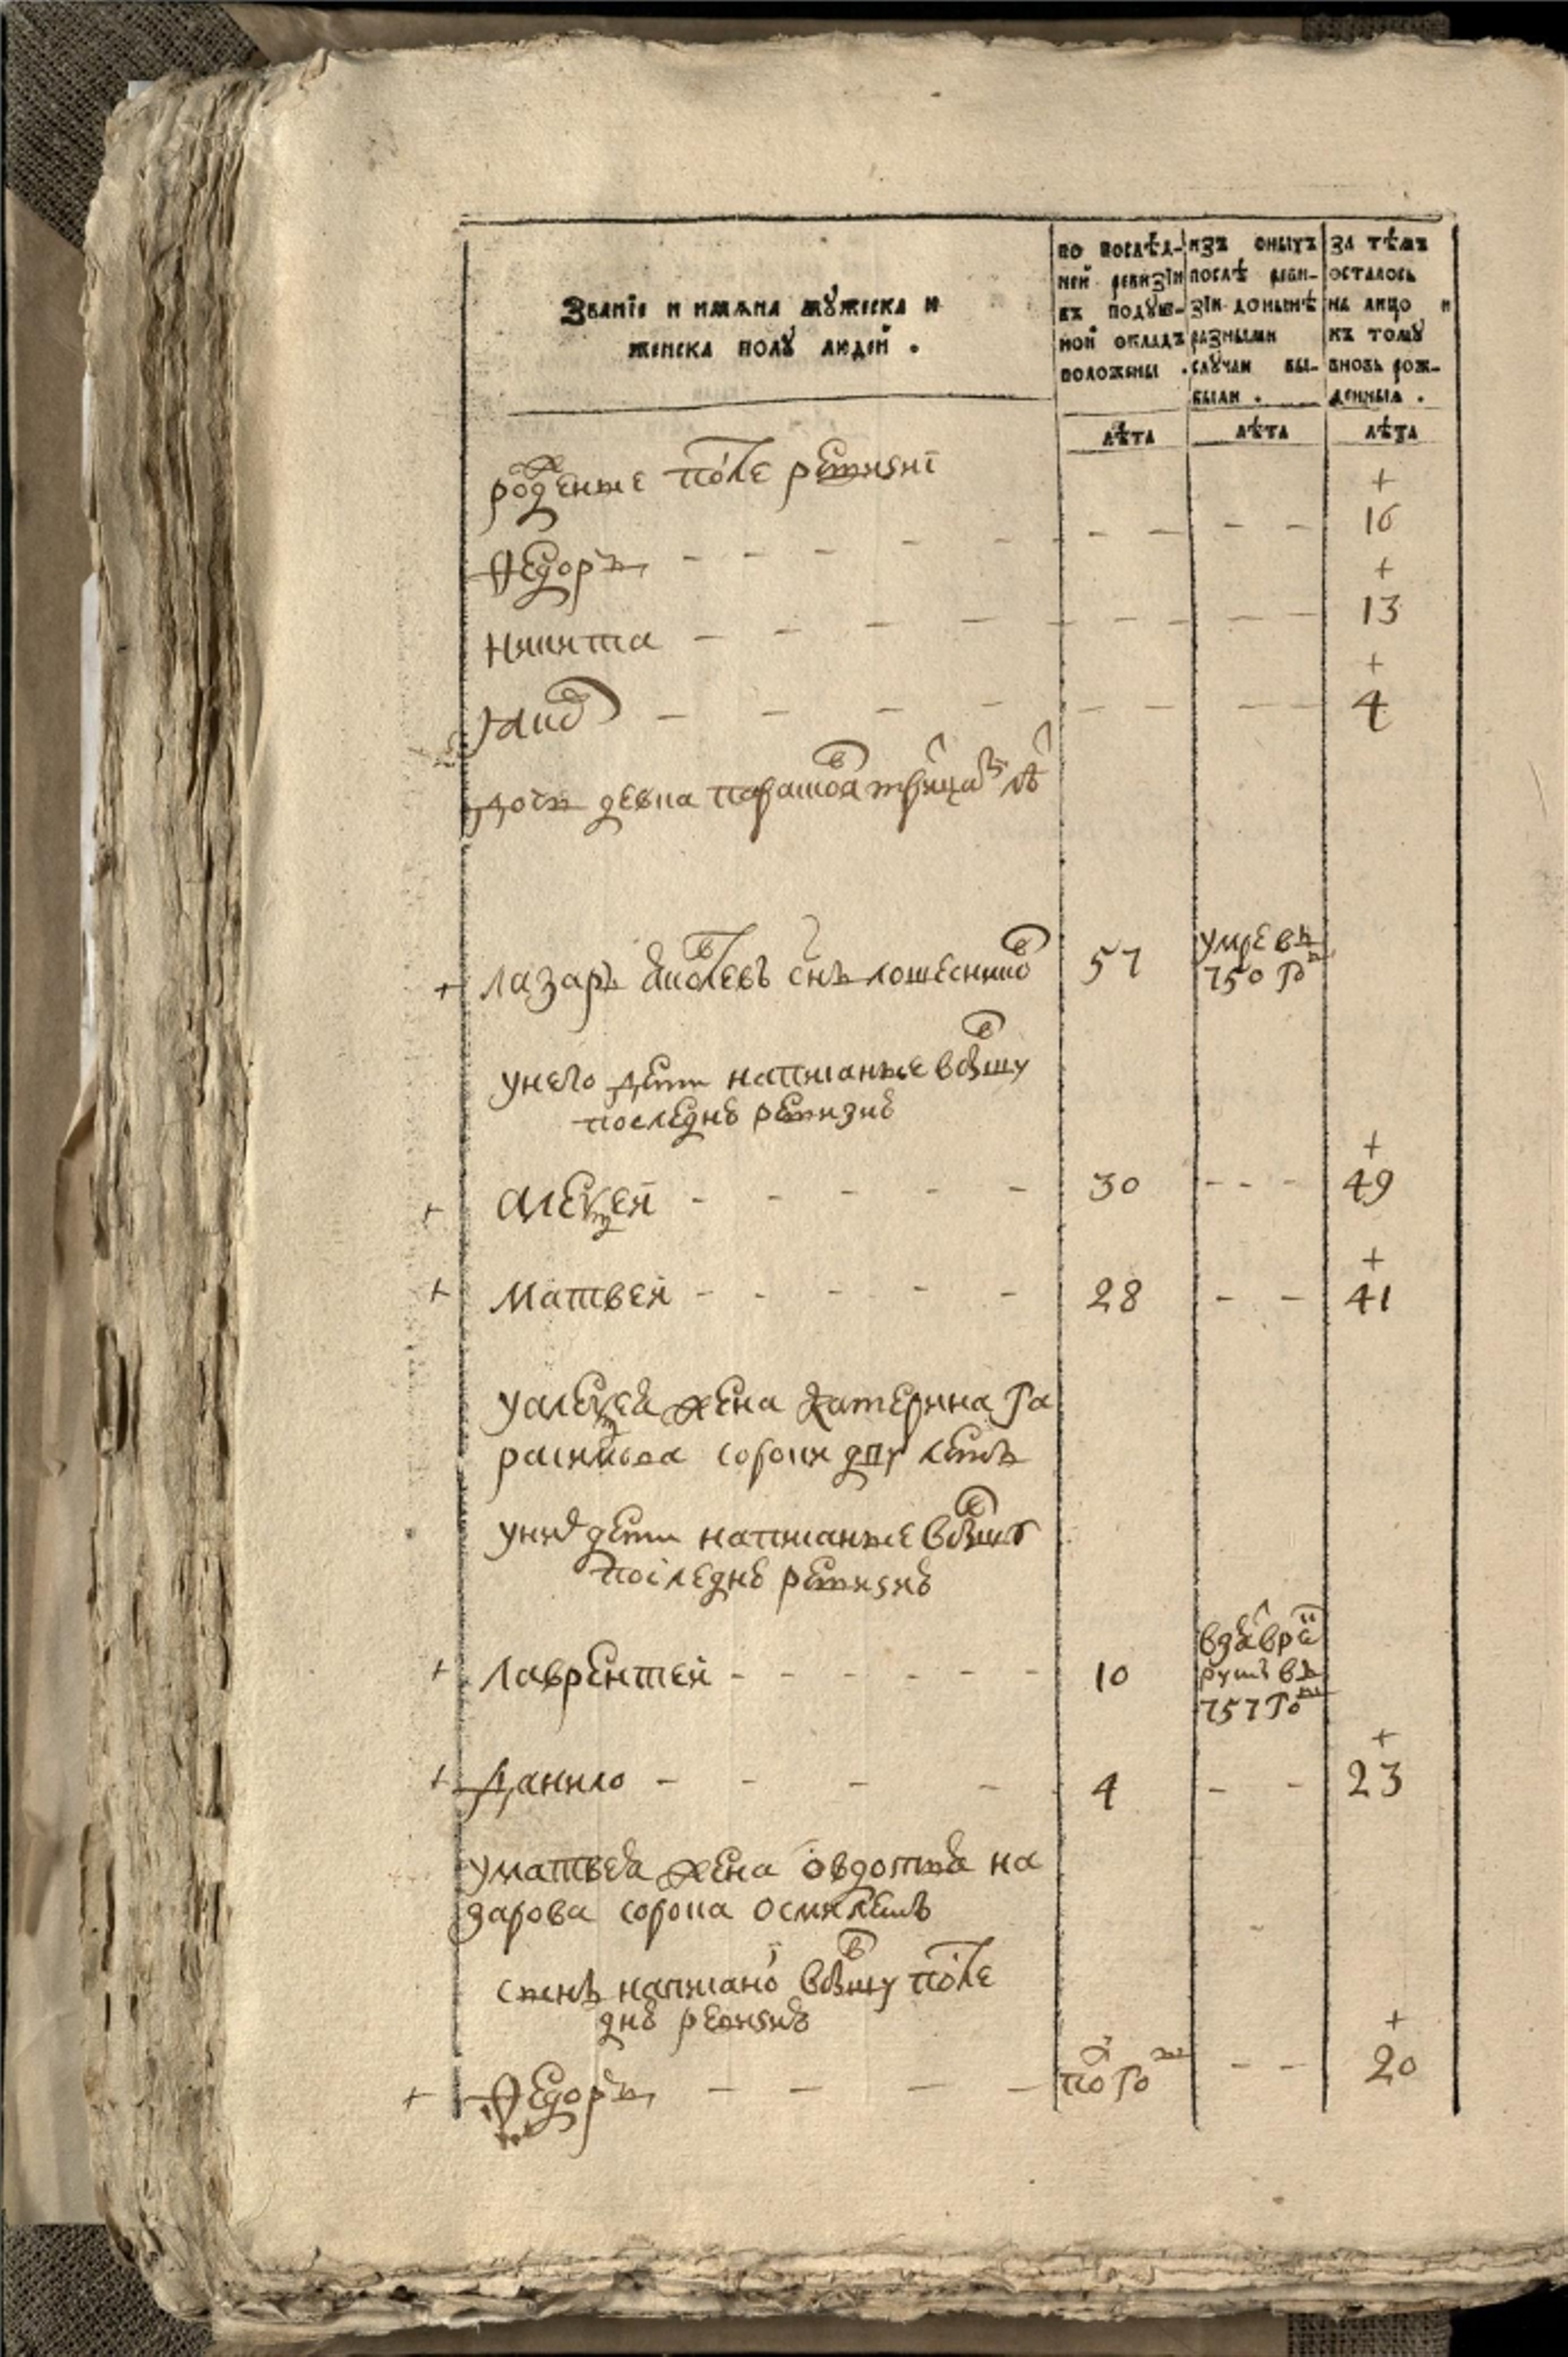 Званїе и имѧна мꙋжеска и
женска полꙋ людей .
по послѣд-
ней ревизїи
въ подꙋш-
ной окладъ
положены .
изъ оныхъ
послѣ реви-
зїи донынѣ
разными
случаи вы-
были .
за тѣмъ
осталось
на лицо и
къ томꙋ
вновь рож-
денныѧ .
лѣта лѣта лѣта
рожденые после ревизиї
+
Федоръ - - - - - - - - - 16
+
Никита - - - - - - - - - 13
+
Яков - - - - - - - - 4
дочь девка
+ лазарь яковлевъ снъ 57 умре въ
750 го
унего дети написанные
последнѣ ревизиѣ
+
+ алексей - - - - - 30 - - - 49
+
+ Матвей - - - - - 28 - - 41
уалексея жена катерина га
расимова сороки дву летъ
уних дети написанные
последнѣ ревизиѣ
+ Лаврентей - - - - - - 10 вда в ре
круты въ
757 го
+
+ Данило - - - - 4 - - 23
уматвея жена овдотья на
зарова сорока осми летъ
снъ написано после
днѣ ревизиѣ
+
+ Федоръ - - - - по го - - 20